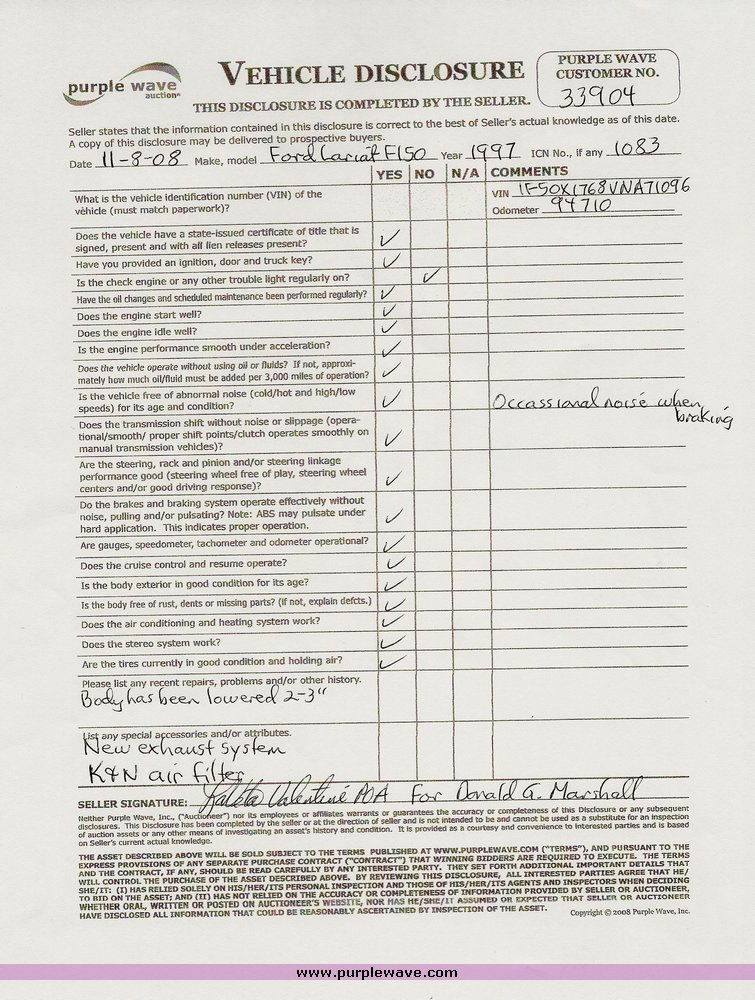 purple wave
auction®
VEHICLE DISCLOSURE
THIS DISCLOSURE IS COMPLETED BY THE SELLER.
PURPLE WAVE
CUSTOMER NO.
33904
Seller states that the information contained in this disclosure is correct to the best of Seller's actual knowledge as of this date.
A copy of this disclosure may be delivered to prospective buyers.
Date 11-8-08 Make, model Ford Lariat F150 Year 1997 ICN No., if any 1083
YES NO N/A COMMENTS
What is the vehicle identification number (VIN) of the
vehicle (must match paperwork)?
VIN 1F50X1768VNA71096
Odometer 94710
Does the vehicle have a state-issued certificate of title that is
signed, present and with all lien releases present? ✓
Have you provided an ignition, door and truck key? ✓
Is the check engine or any other trouble light regularly on? ✓
Have the oil changes and scheduled maintenance been performed regularly? ✓
Does the engine start well? ✓
Does the engine idle well? ✓
Is the engine performance smooth under acceleration? ✓
Does the vehicle operate without using oil or fluids? If not, approxi-
mately how much oil/fluid must be added per 3,000 miles of operation? ✓
Is the vehicle free of abnormal noise (cold/hot and high/low
speeds) for its age and condition? ✓ Occassional noise when
braking
Does the transmission shift without noise or slippage (opera-
tional/smooth/ proper shift points/clutch operates smoothly on
manual transmission vehicles)? ✓
Are the steering, rack and pinion and/or steering linkage
performance good (steering wheel free of play, steering wheel
centers and/or good driving response)? ✓
Do the brakes and braking system operate effectively without
noise, pulling and/or pulsating? Note: ABS may pulsate under
hard application. This indicates proper operation. ✓
Are gauges, speedometer, tachometer and odometer operational? ✓
Does the cruise control and resume operate? ✓
Is the body exterior in good condition for its age? ✓
Is the body free of rust, dents or missing parts? (if not, explain defcts.) ✓
Does the air conditioning and heating system work? ✓
Does the stereo system work? ✓
Are the tires currently in good condition and holding air? ✓
Please list any recent repairs, problems and/or other history.
Body has been lowered 2-3"
List any special accessories and/or attributes.
New exhaust system
K&N air filter
SELLER SIGNATURE: Valentine POA For Donald G. Marshall
Neither Purple Wave, Inc., ("Auctioneer") nor its employees or affiliates warrants or guarantees the accuracy or completeness of this Disclosure or any subsequent
disclosures. This Disclosure has been completed by the seller or at the direction of seller and is not intended to be and cannot be used as a substitute for an inspection
of auction assets or any other means of investigating an asset's history and condition. It is provided as a courtesy and convenience to interested parties and is based
on Seller's current actual knowledge.
THE ASSET DESCRIBED ABOVE WILL BE SOLD SUBJECT TO THE TERMS PUBLISHED AT WWW.PURPLEWAVE.COM ("TERMS"), AND PURSUANT TO THE
EXPRESS PROVISIONS OF ANY SEPARATE PURCHASE CONTRACT ("CONTRACT") THAT WINNING BIDDERS ARE REQUIRED TO EXECUTE. THE TERMS
AND THE CONTRACT, IF ANY, SHOULD BE READ CAREFULLY BY ANY INTERESTED PARTY. THEY SET FORTH ADDITIONAL IMPORTANT DETAILS THAT
WILL CONTROL THE PURCHASE OF THE ASSET DESCRIBED ABOVE. BY REVIEWING THIS DISCLOSURE, ALL INTERESTED PARTIES AGREE THAT HE/
SHE/IT: (I) HAS RELIED SOLELY ON HIS/HER/ITS PERSONAL INSPECTION AND THOSE OF HIS/HER/ITS AGENTS AND INSPECTORS WHEN DECIDING
TO BID ON THE ASSET; AND (II) HAS NOT RELIED ON THE ACCURACY OR COMPLETENESS OF INFORMATION PROVIDED BY SELLER OR AUCTIONEER,
WHETHER ORAL, WRITTEN OR POSTED ON AUCTIONEER'S WEBSITE, NOR HAS HE/SHE/IT ASSUMED OR EXPECTED THAT SELLER OR AUCTIONEER
HAVE DISCLOSED ALL INFORMATION THAT COULD BE REASONABLY ASCERTAINED BY INSPECTION OF THE ASSET.
Copyright © 2008 Purple Wave, Inc.
www.purplewave.com